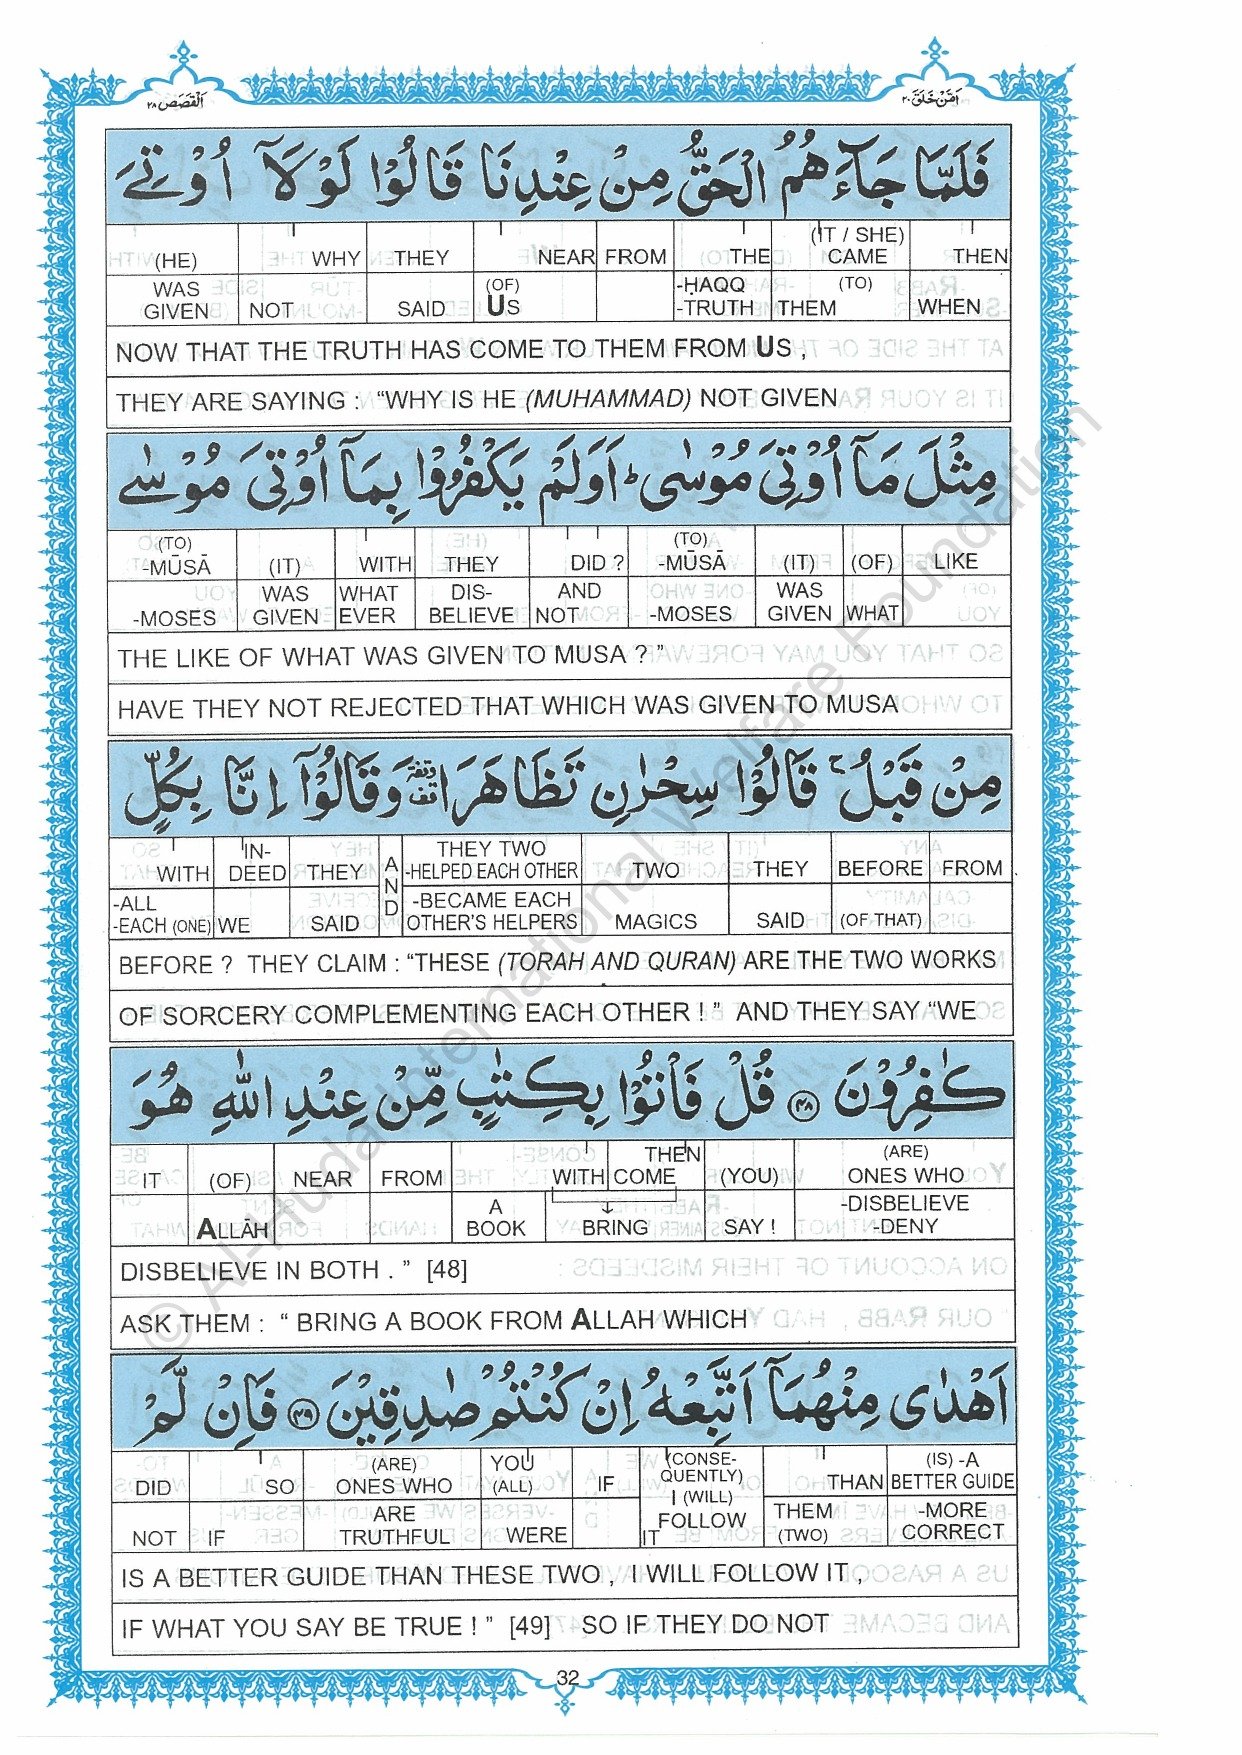 اَلْقَصَص ٢٨
اَمَّنْ خَلَقَ ٢٠
فَلَمَّا جَآءَهُمُ الْحَقُّ مِنْ عِنْدِنَا قَالُوْا لَوْلَاۤ اُوْتِیَ
(HE) WHY THEY NEAR FROM THE (IT / SHE) CAME THEN
WAS GIVEN NOT SAID (OF) US -ḤAQQ -TRUTH THEM (TO) WHEN
NOW THAT THE TRUTH HAS COME TO THEM FROM US ,
THEY ARE SAYING : “WHY IS HE (MUHAMMAD) NOT GIVEN
مِثْلَ مَاۤ اُوْتِیَ مُوْسٰی ؕ اَوَلَمْ یَكْفُرُوْا بِمَاۤ اُوْتِیَ مُوْسٰی
(TO) -MŪSĀ (IT) WITH THEY DID ? (TO) -MŪSĀ (IT) (OF) LIKE
-MOSES WAS GIVEN WHAT EVER DIS- BELIEVE AND NOT -MOSES WAS GIVEN WHAT
THE LIKE OF WHAT WAS GIVEN TO MUSA ? ”
HAVE THEY NOT REJECTED THAT WHICH WAS GIVEN TO MUSA
مِنْ قَبْلُ ۚ قَالُوْا سِحْرٰنِ تَظَاهَرَا وقفة وَقَالُوْۤا اِنَّا بِكُلٍّ
WITH IN- DEED THEY AND THEY TWO -HELPED EACH OTHER TWO THEY BEFORE FROM
-ALL -EACH (ONE) WE SAID -BECAME EACH OTHER'S HELPERS MAGICS SAID (OF THAT)
BEFORE ? THEY CLAIM : “THESE (TORAH AND QURAN) ARE THE TWO WORKS
OF SORCERY COMPLEMENTING EACH OTHER ! ” AND THEY SAY “WE
كٰفِرُوْنَ ۝٤٨ قُلْ فَاْتُوْا بِكِتٰبٍ مِّنْ عِنْدِ اللّٰهِ هُوَ
IT (OF) NEAR FROM WITH THEN COME (YOU) (ARE) ONES WHO
ALLĀH A BOOK ↓ BRING SAY ! -DISBELIEVE -DENY
DISBELIEVE IN BOTH . ” [48]
ASK THEM : “ BRING A BOOK FROM ALLAH WHICH
اَهْدٰی مِنْهُمَاۤ اَتَّبِعْهُ اِنْ كُنْتُمْ صٰدِقِیْنَ ۝٤٩ فَاِنْ لَّمْ
DID SO (ARE) ONES WHO YOU (ALL) IF (CONSE- QUENTLY) I (WILL) THAN (IS) -A BETTER GUIDE
NOT IF ARE TRUTHFUL WERE IT FOLLOW THEM (TWO) -MORE CORRECT
IS A BETTER GUIDE THAN THESE TWO , I WILL FOLLOW IT ,
IF WHAT YOU SAY BE TRUE ! ” [49] SO IF THEY DO NOT
32
© Al-Huda International Welfare Foundation